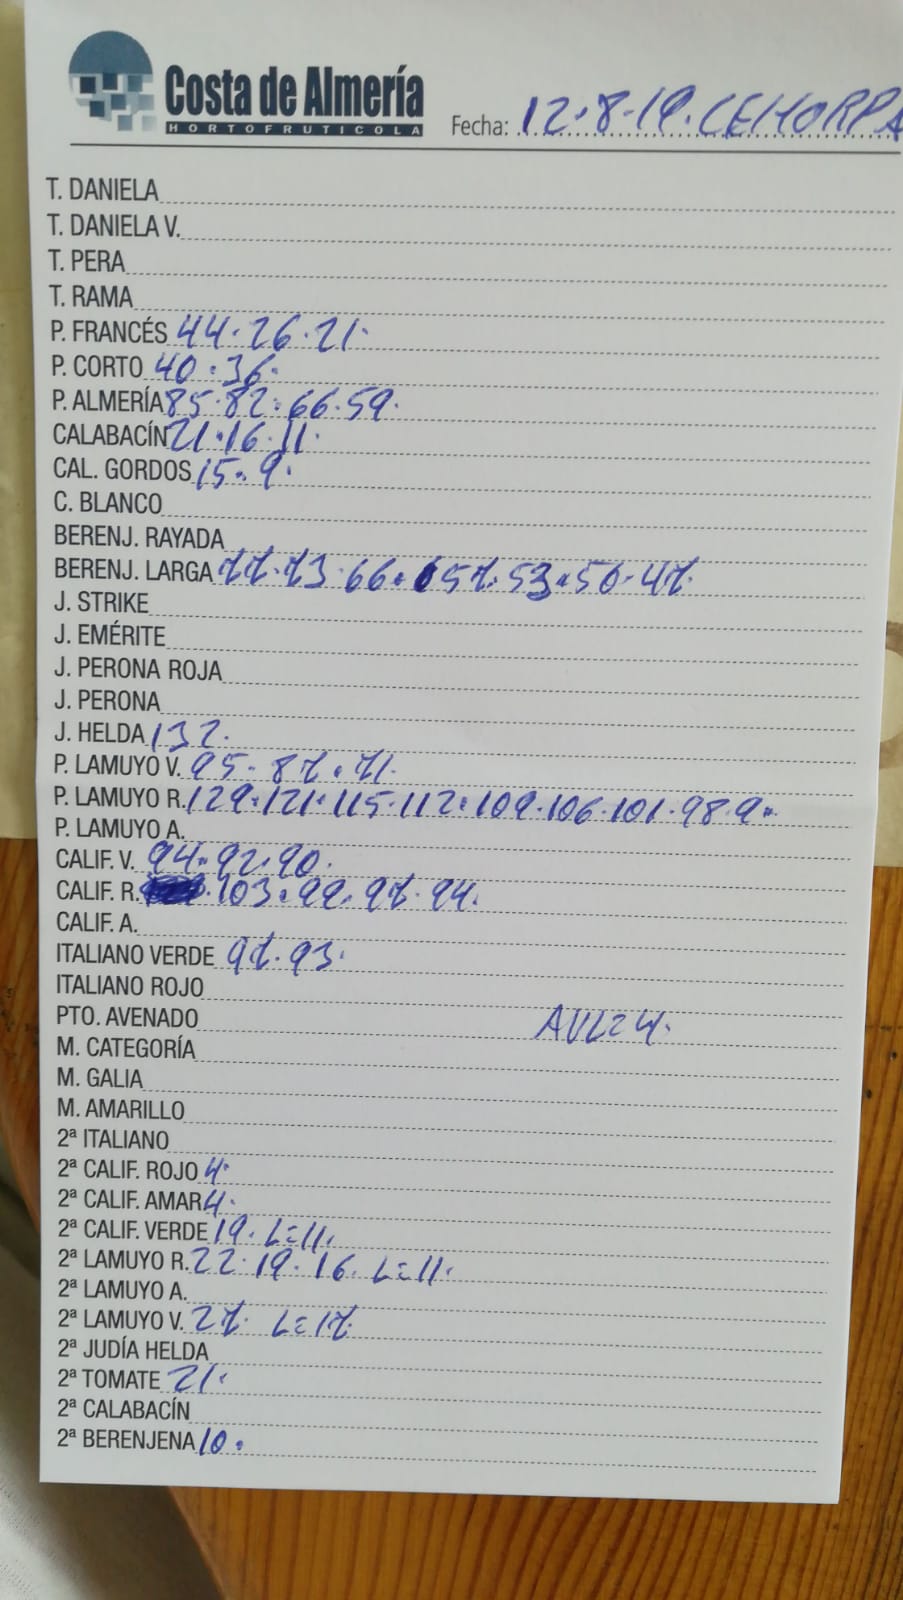 Costa de Almería
HORTOFRUTICOLA
Fecha: 12.8.19. CEHORPA
T. DANIELA
T. DANIELA V.
T. PERA
T. RAMA
P. FRANCÉS 44.26.21.
P. CORTO 40.36.
P. ALMERÍA 85.82.66.59.
CALABACÍN 21.16.11.
CAL. GORDOS 15.9.
C. BLANCO
BERENJ. RAYADA
BERENJ. LARGA 77.73.66.57.53.50.47.
J. STRIKE
J. EMÉRITE
J. PERONA ROJA
J. PERONA
J. HELDA 132.
P. LAMUYO V. 95.87.71.
P. LAMUYO R. 129.121.115.112.109.106.101.98.9.
P. LAMUYO A.
CALIF. V. 94.92.90.
CALIF. R. 103.99.97.94.
CALIF. A.
ITALIANO VERDE 97.93.
ITALIANO ROJO
PTO. AVENADO AVL=4.
M. CATEGORÍA
M. GALIA
M. AMARILLO
2ª ITALIANO
2ª CALIF. ROJO 4.
2ª CALIF. AMAR 4.
2ª CALIF. VERDE 19. L=11.
2ª LAMUYO R. 22.19.16. L=11.
2ª LAMUYO A.
2ª LAMUYO V. 27 L=17
2ª JUDÍA HELDA
2ª TOMATE 21.
2ª CALABACÍN
2ª BERENJENA 10.